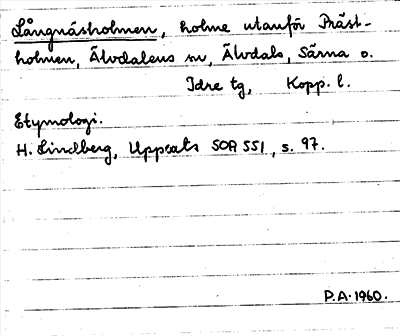 Långnäsholmen, holme utanför Präst-
holmen, Älvdalens sn, Älvdals, Särna o.
Idre tg, Kopp. l.
Etymologi.
H. Lindberg, Uppsats SOA 551, s. 97.
P.A. 1960.